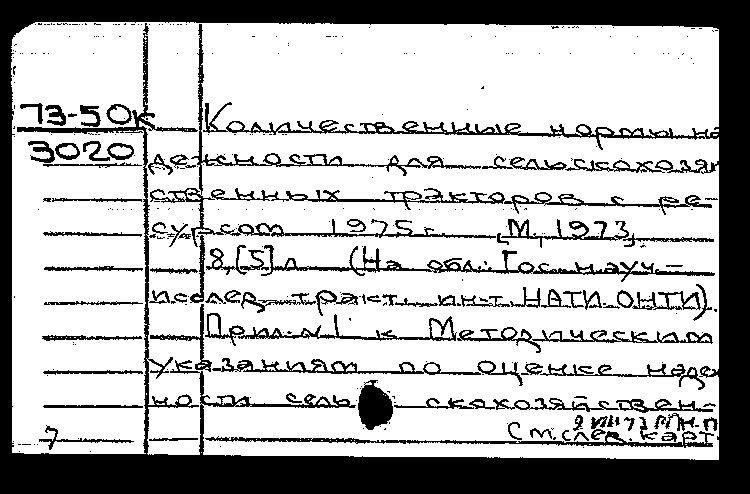 73-50к Количественные нормы на
3020 дежности для сельскохозя
ственных тракторов с ре-
сурсом 1975г. [М., 1973].
8,[5] л (На обл.: Гос. науч.-
исслед. тракт. ин-т. НАТИ. ОНТИ).
Прил. №1 к Методическим
указаниям по оценке наде
ности сельскохозяйствен-
9 VIII 73
7 См. след. карт.